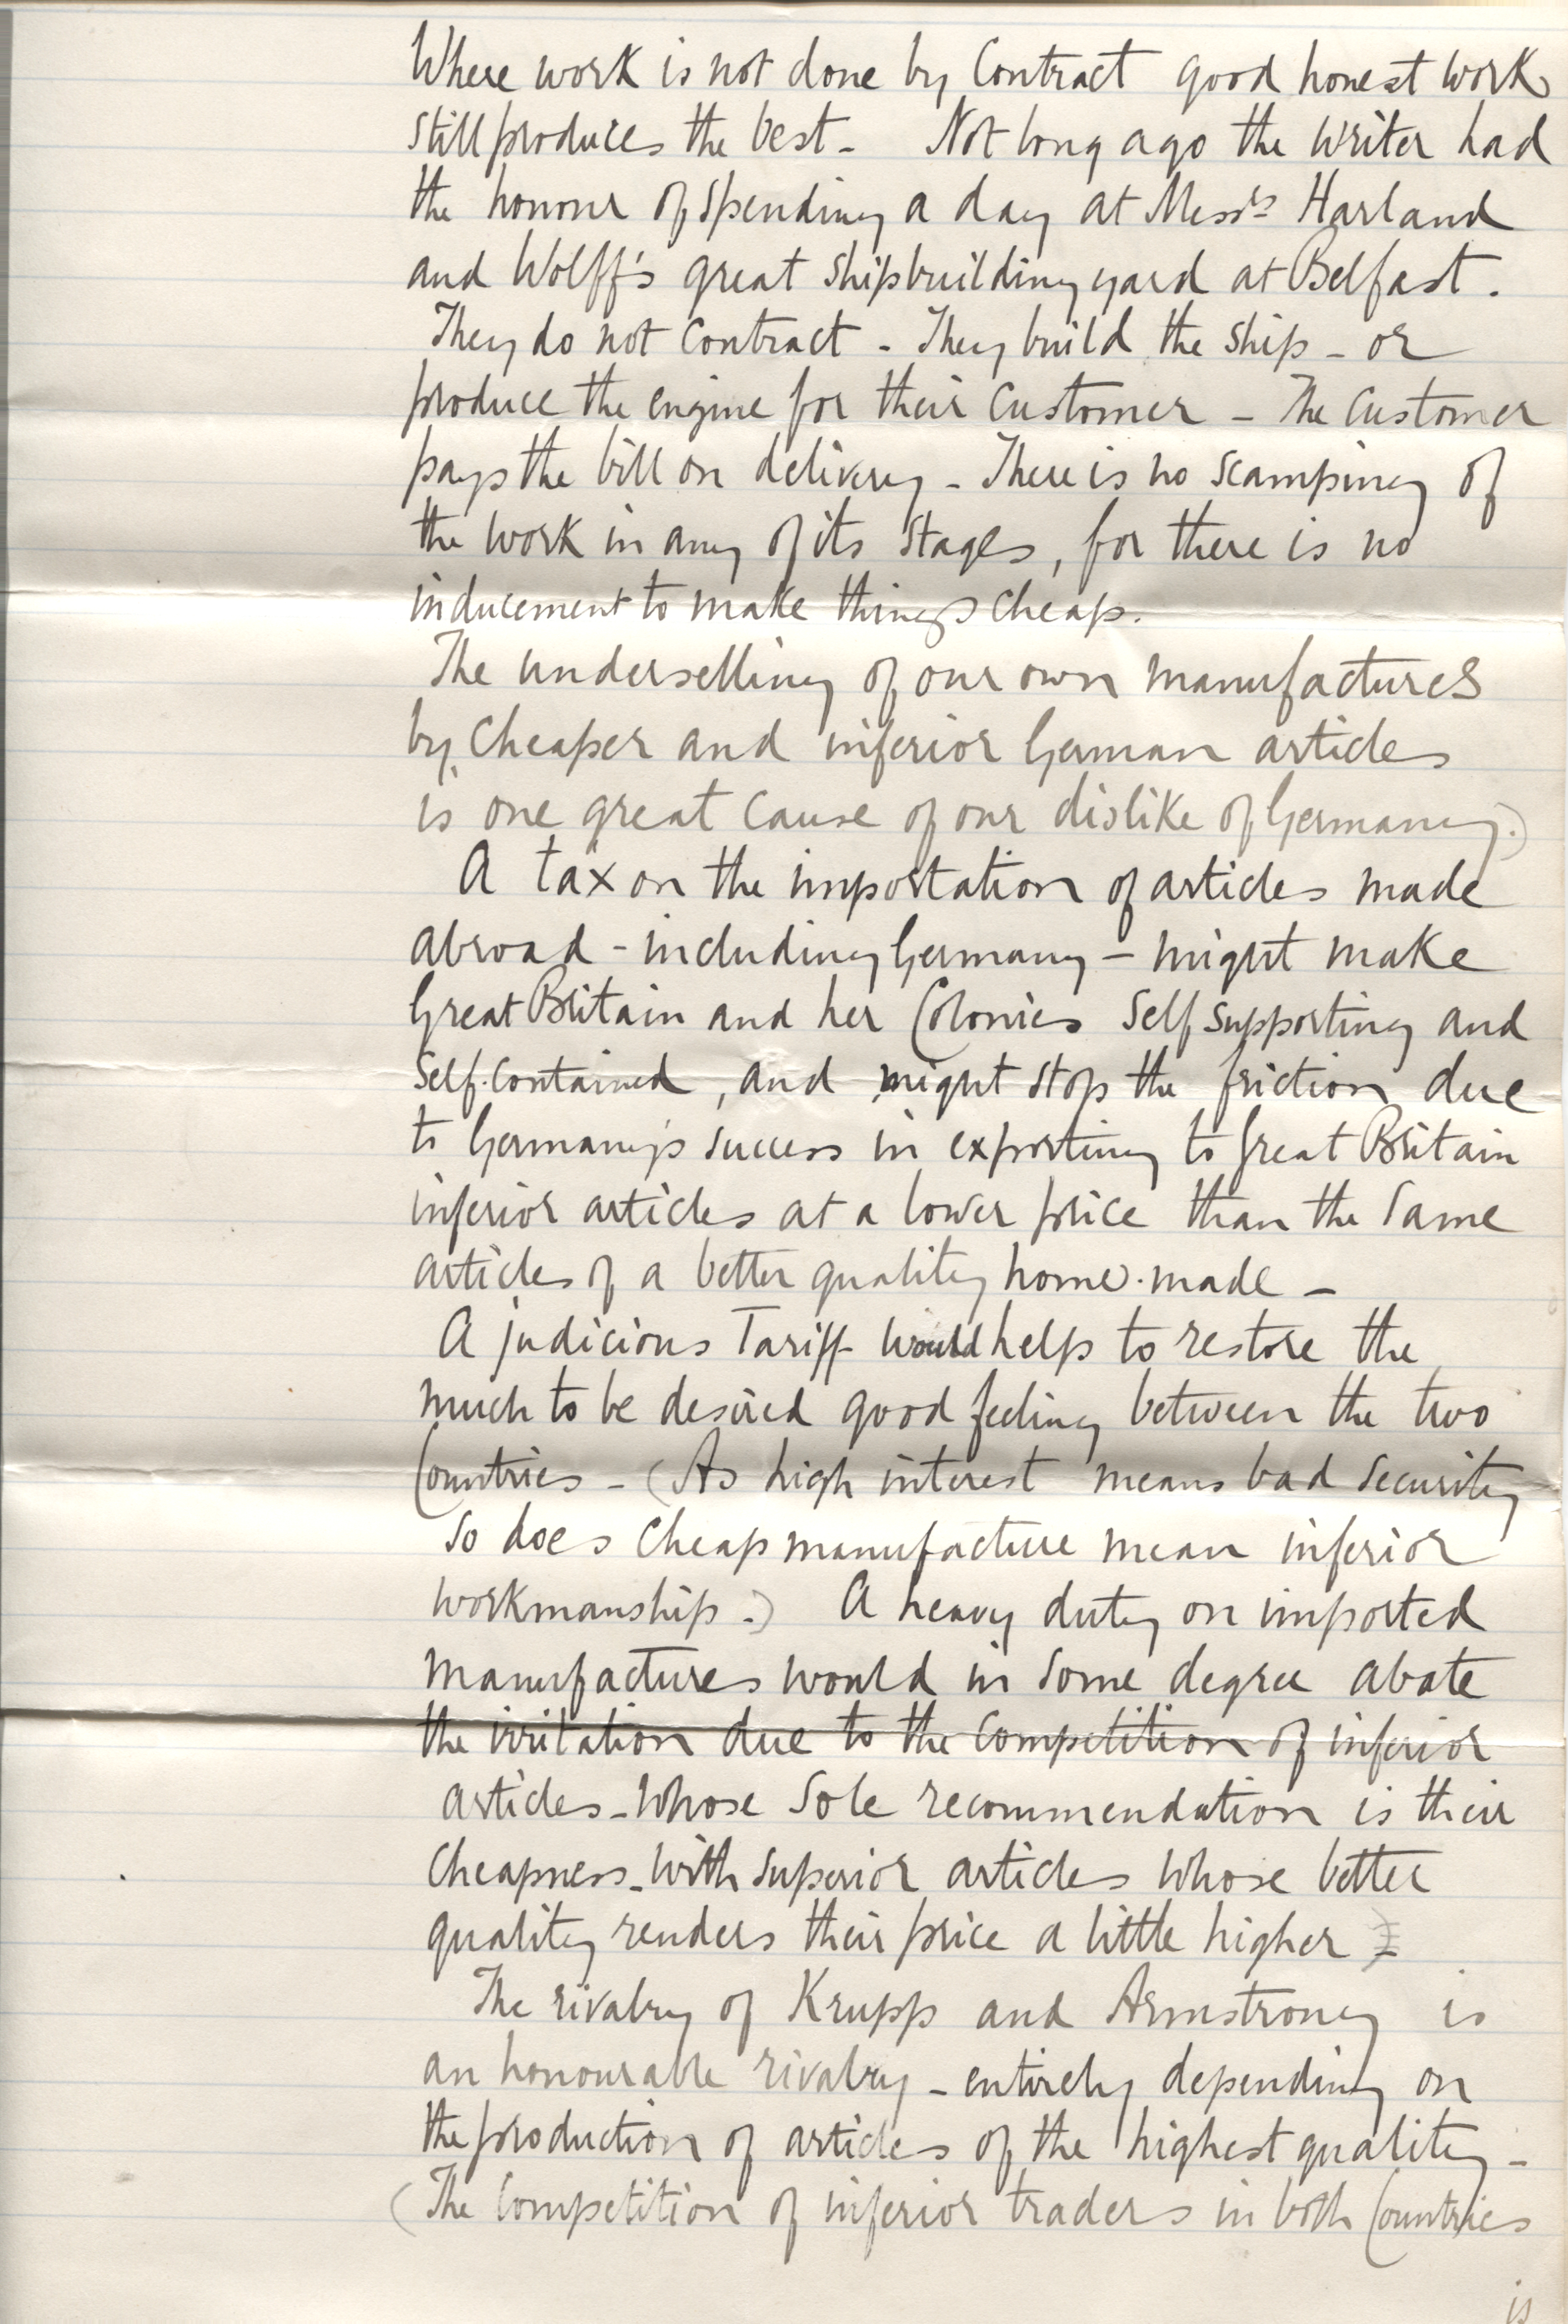 Where work is not done by Contract good honest work
still produces the best - Not long ago the writer had
the honour of spending a day at Messrs Harland
and Wolff's great shipbuilding yard at Belfast.
They do not contract - They build the ship - or
produce the engine for their customer - The customer
pays the bill on delivery - There is no scamping of
the work in any of its stages, for there is no
inducement to make things cheap.
The underselling of our own manufactures
by cheaper and inferior German articles
is one great cause of our dislike of Germany.)
A tax on the importation of articles made
abroad - including Germany - might make
Great Britain and her Colonies self supporting and
self-contained, and might stop the friction due
to Germany's success in exporting to Great Britain
inferior articles at a lower price than the same
articles of a better quality home-made -
A judicious Tariff would help to restore the
much to be desired good feeling between the two
Countries - (As high interest means bad security
so does cheap manufacture mean inferior
workmanship.) A heavy duty on imported
manufactures would in some degree abate
the irritation due to the competition of inferior
articles - whose sole recommendation is their
cheapness - with superior articles whose better
quality renders their price a little higher -
The rivalry of Krupp and Armstrong is
an honourable rivalry - entirely depending on
the production of articles of the highest quality -
(The competition of inferior traders in both Countries
is